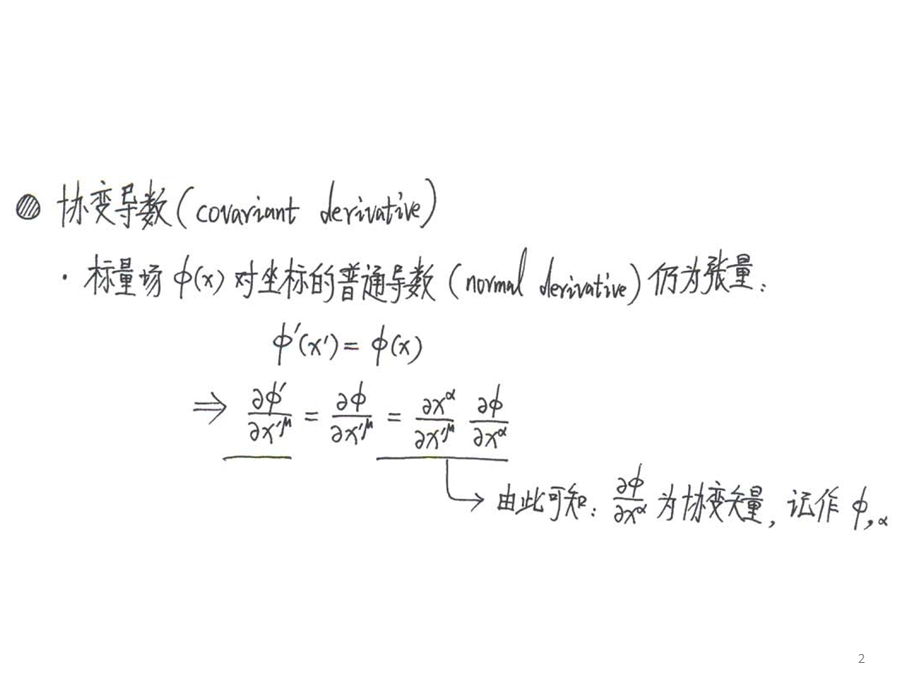 协变导数(covariant derivative)
· 标量场 φ(x) 对坐标的普通导数 (normal derivative) 仍为张量:
φ'(x') = φ(x)
⇒ ∂φ'/∂x'^μ = ∂φ/∂x'^μ = ∂x^α/∂x'^μ ∂φ/∂x^α
→ 由此可知: ∂φ/∂x^α 为协变矢量, 记作 φ,α
2